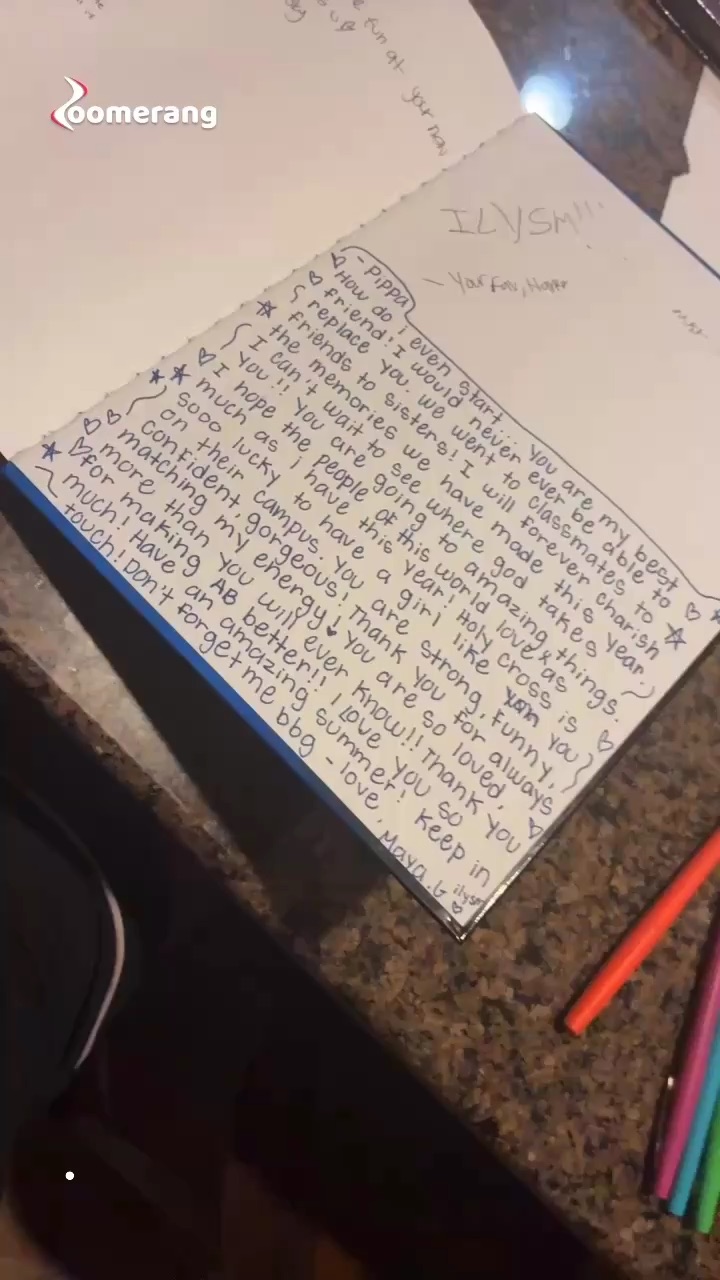 Zoomerang
fun at your new
ILYSM!!!
- Your Fav,
- Pippa
How do i even start... you are my best
friend! I would never ever be able to
replace you. we went to classmates to
friends to sisters! I will forever charish
the memories we have made this year.
I can't wait to see where god takes
you!! You are going to amazing things.
I hope the people of this world love as
much as i have this year! Holy Cross is
sooo lucky to have a girl like you
on their campus. You are strong, funny,
confident, gorgeous! Thank you for always
matching my energy! You are so loved,
more than you will ever know!! Thank you
for making AB better!! I love you so
much! Have an amazing summer! keep in
touch! Don't forget me bbg - love, Maya.G
ilysm